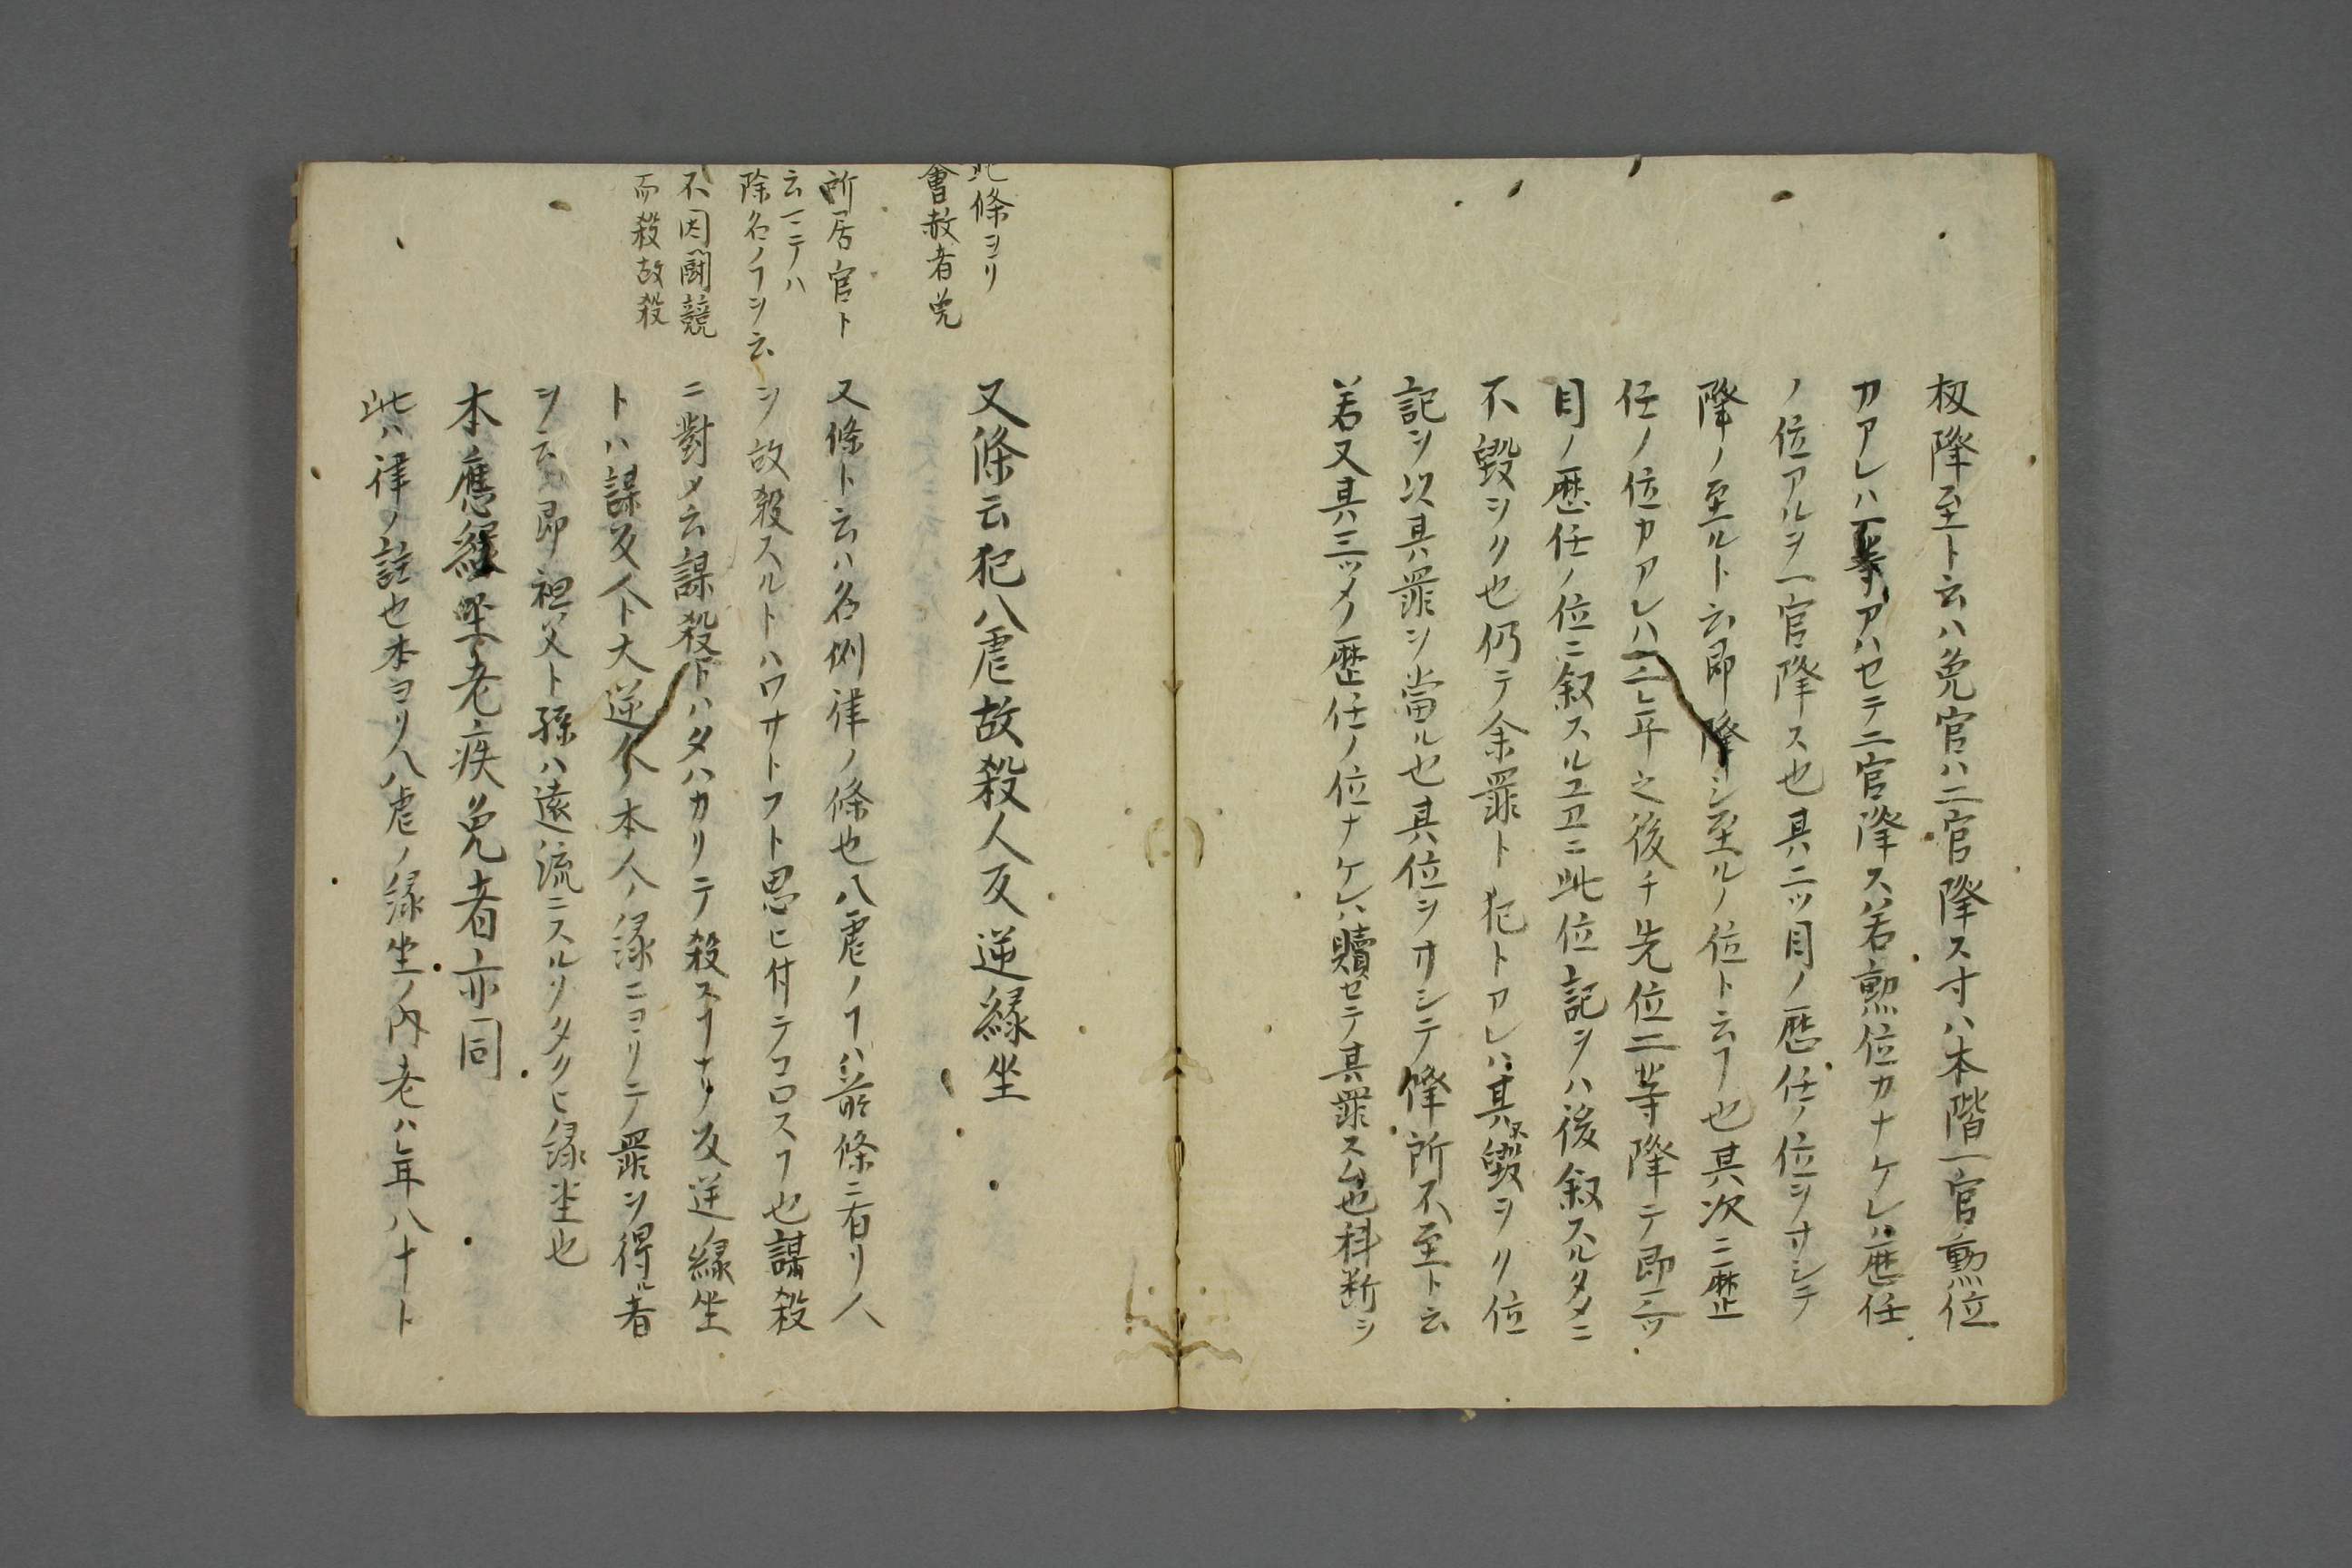 扠降至ト云ハ免官ハ二官降ス寸ハ本階一官勲位
カアレハ一等アハセテ二官降ス若勲位カナケレハ歴任
ノ位アルヲ一官降ス也其二ツ目ノ歴任ノ位ヲオシテ
降ノ至ルト云即降シ至ルノ位ト云フ也其次ニ歴
任ノ位カアレハ三年之後チ先位二等降テ即二ツ
目ノ歴任ノ位ニ叙スルユヱニ此位記ヲハ後叙スルタメニ
不毀ヲク也仍テ余罪ト犯トアレハ其不毀ヲク位
記ヲ以其罪ヲ當ル也其位ヲオシテ降所不至ト云
若又其三ツメノ歴任ノ位ナケレハ贖セテ其罪スム也科断シ
此條ヨリ
會赦者免
又條云犯八虐故殺人反逆縁坐
所居官ト
云ニテハ
除名ノヿヲ云
不因鬪競
而殺故殺
又條ト云ハ名例律ノ條也八虐ノヿハ前條ニ有リ人
ヲ故殺スルトハワサトフト思ヒ付テコロスヿ也謀殺
ニ對メ云謀殺トハタハカリテ殺スヿナリ反逆ノ縁坐
トハ謀反人ト大逆人ノ本人ノ縁ニヨリテ罪ヲ得ル者
ヲ云即祖父ト孫ハ遠流ニスルノタクヒ縁坐也
本應縁坐老疾免者亦同
此ハ律ノ註也本ヨリ八虐ノ縁坐ノ内老ハ年八十ト